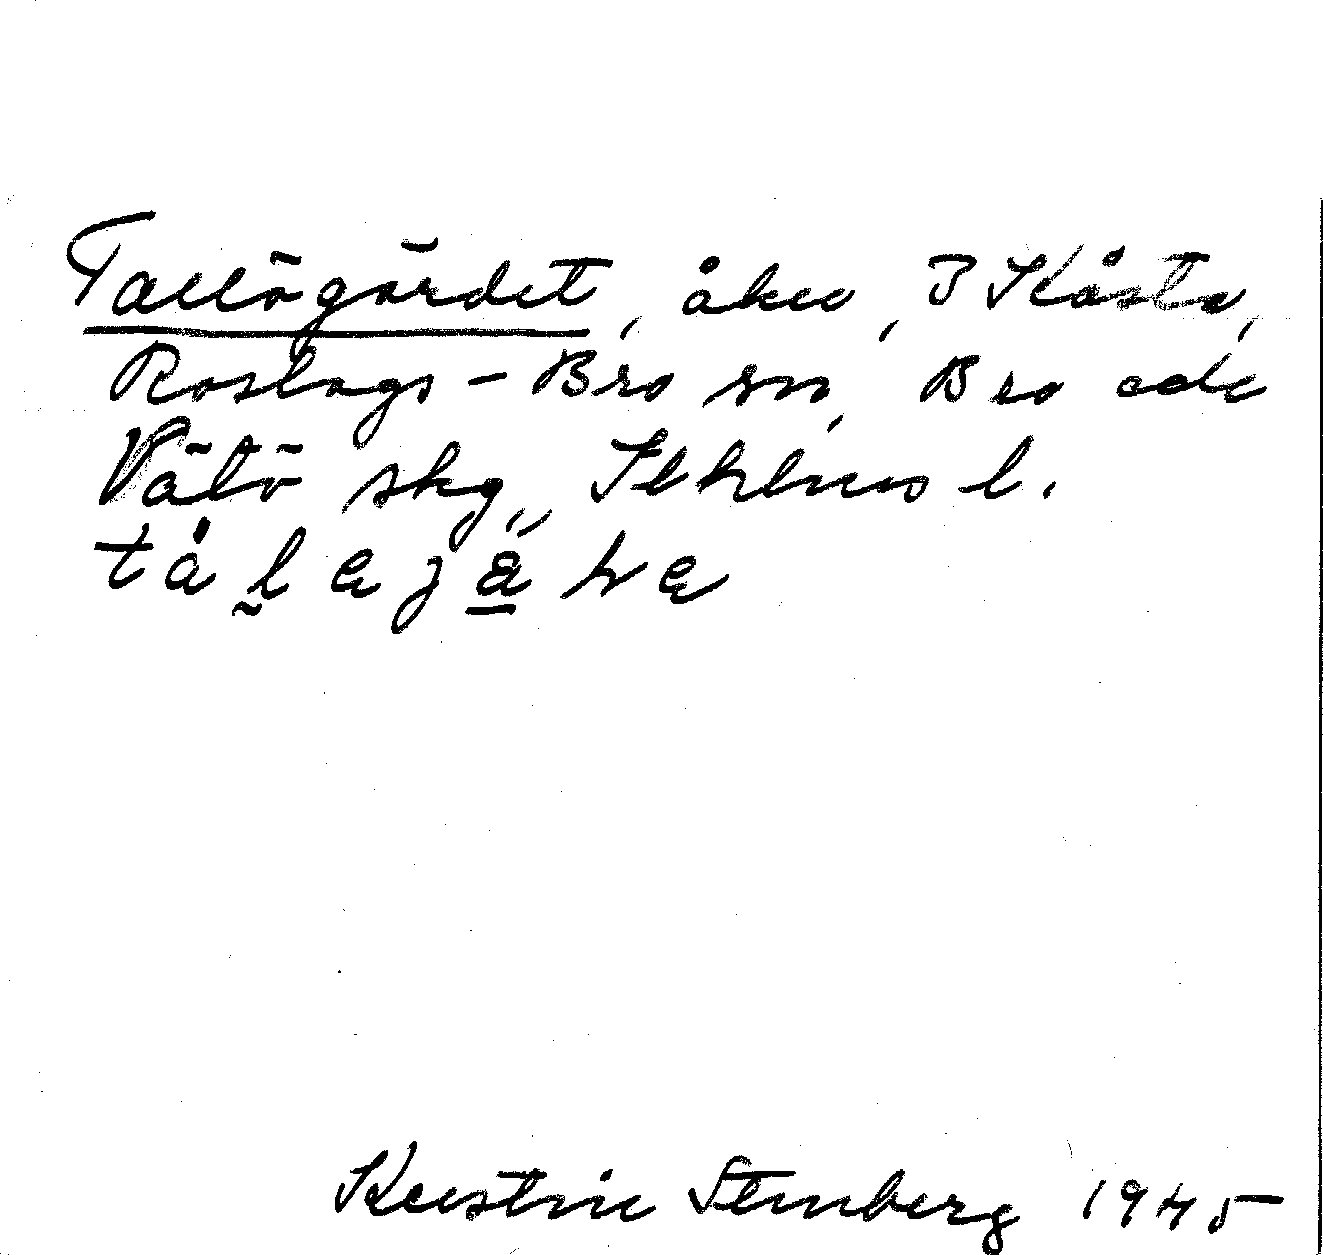 Tallögärdet, åker, I Kåsta,
Roslags-Bro sn, Bro och
Vätö skg, Sthlms l.
Kerstin Stenberg 1945